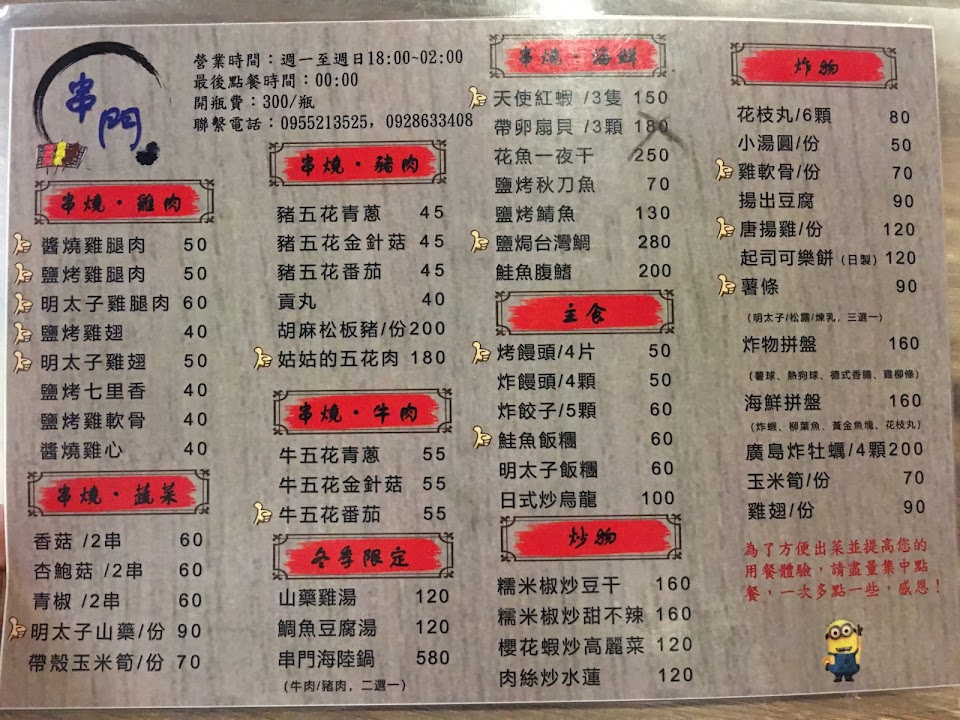 串門
營業時間：週一至週日18:00~02:00
最後點餐時間：00:00
開瓶費：300/瓶
聯繫電話：0955213525，0928633408
串燒·雞肉
醬燒雞腿肉 50
鹽烤雞腿肉 50
明太子雞腿肉 60
鹽烤雞翅 40
明太子雞翅 50
鹽烤七里香 40
鹽烤雞軟骨 40
醬燒雞心 40
串燒·蔬菜
香菇 /2串 60
杏鮑菇 /2串 60
青椒 /2串 60
明太子山藥/份 90
帶殼玉米筍/份 70
串燒·豬肉
豬五花青蔥 45
豬五花金針菇 45
豬五花番茄 45
貢丸 40
胡麻松板豬/份 200
姑姑的五花肉 180
串燒·牛肉
牛五花青蔥 55
牛五花金針菇 55
牛五花番茄 55
冬季限定
山藥雞湯 120
鯛魚豆腐湯 120
串門海陸鍋 580
（牛肉/豬肉，二選一）
串燒·海鮮
天使紅蝦 /3隻 150
帶卵扇貝 /3顆 180
花魚一夜干 250
鹽烤秋刀魚 70
鹽烤鯖魚 130
鹽焗台灣鯛 280
鮭魚腹鰭 200
主食
烤饅頭/4片 50
炸饅頭/4顆 50
炸餃子/5顆 60
鮭魚飯糰 60
明太子飯糰 60
日式炒烏龍 100
炒物
糯米椒炒豆干 160
糯米椒炒甜不辣 160
櫻花蝦炒高麗菜 120
肉絲炒水蓮 120
炸物
花枝丸/6顆 80
小湯圓/份 50
雞軟骨/份 70
揚出豆腐 90
唐揚雞/份 120
起司可樂餅（日製）120
薯條 90
（明太子/松露/煉乳，三選一）
炸物拼盤 160
（薯球、熱狗球、德式香腸、雞柳條）
海鮮拼盤 160
（炸蝦、柳葉魚、黃金魚塊、花枝丸）
廣島炸牡蠣/4顆 200
玉米筍/份 70
雞翅/份 90
為了方便出菜並提高您的
用餐體驗，請盡量集中點
餐，一次多點一些，感恩！